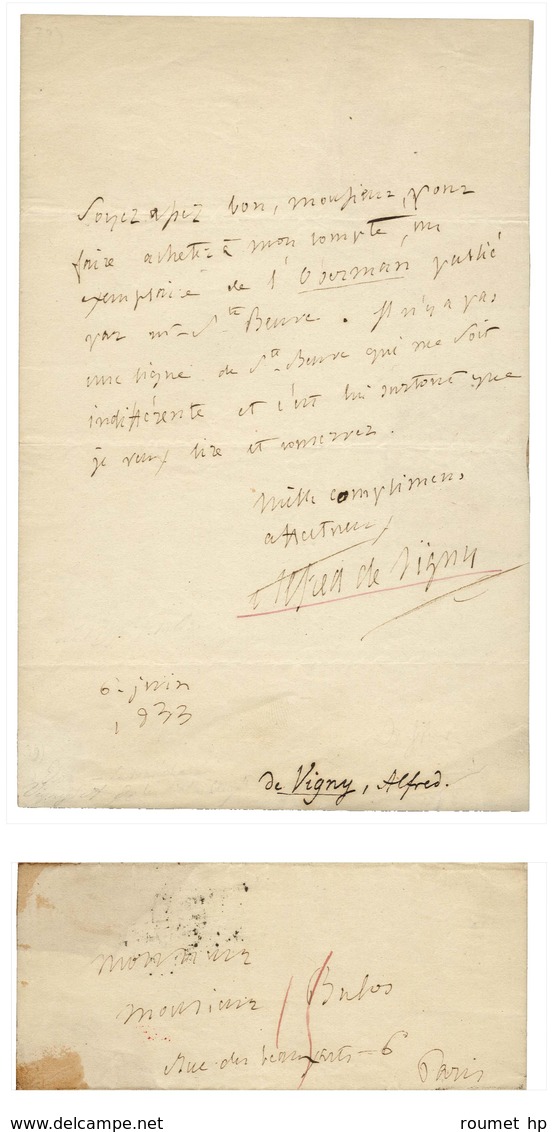 Soyez assez bon, monsieur, pour
faire acheter à mon compte, un
exemplaire de l'Oberman publié
par mr Ste Beuve. Il n'y a pas
une ligne de Ste Beuve qui me soit
indifférente et c'est lui surtout que
je veux lire et conserver.
Mille complimens
affectueux
Alfred de Vigny
6 juin
1833
de Vigny, Alfred.
Monsieur
Monsieur Bulos
Rue des beaux arts - 6
Paris
www.delcampe.net
roumet hp